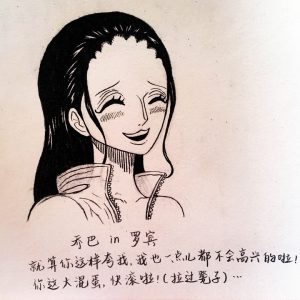 乔巴 in 罗宾
就算你这样夸我,我也一点儿都不会高兴的啦!
你这大混蛋,快滚啦!(拉过凳子)…